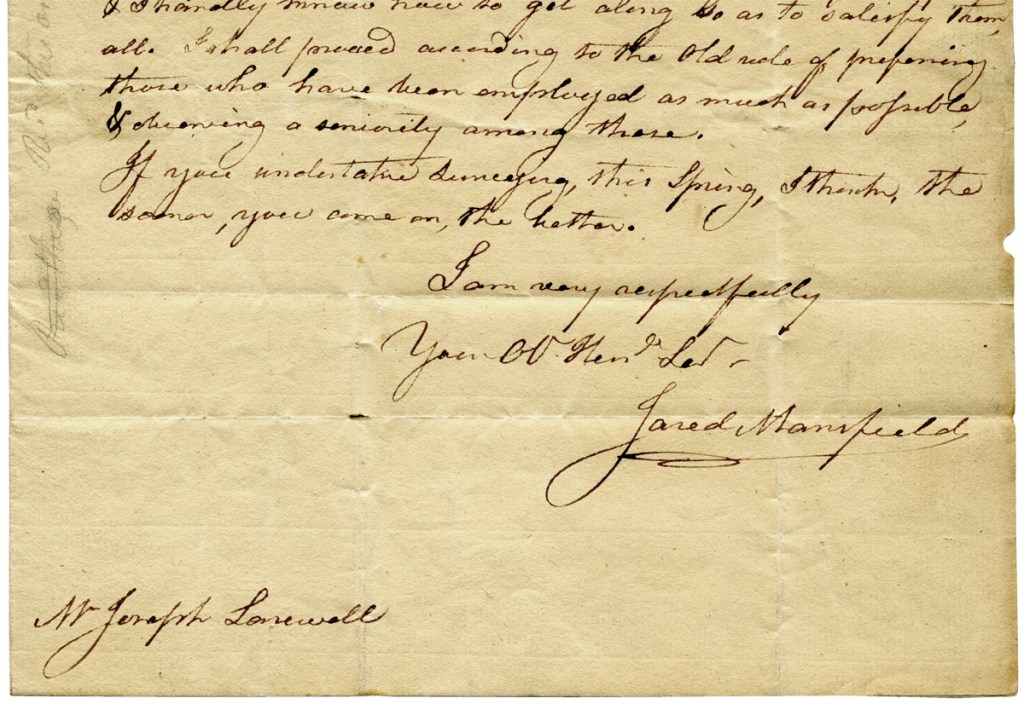 & I hardly know how to get along so as to satisfy them
all. I shall proceed according to the Old rule of preferring
those who have been employed as much as possible,
& observing a seniority among those.
If you undertake Surveying, this Spring, I think, the
sooner, you come on, the better.
I am very respectfully
Your Obt. Hum.le Ser.
Jared Mansfield
Mr Joseph